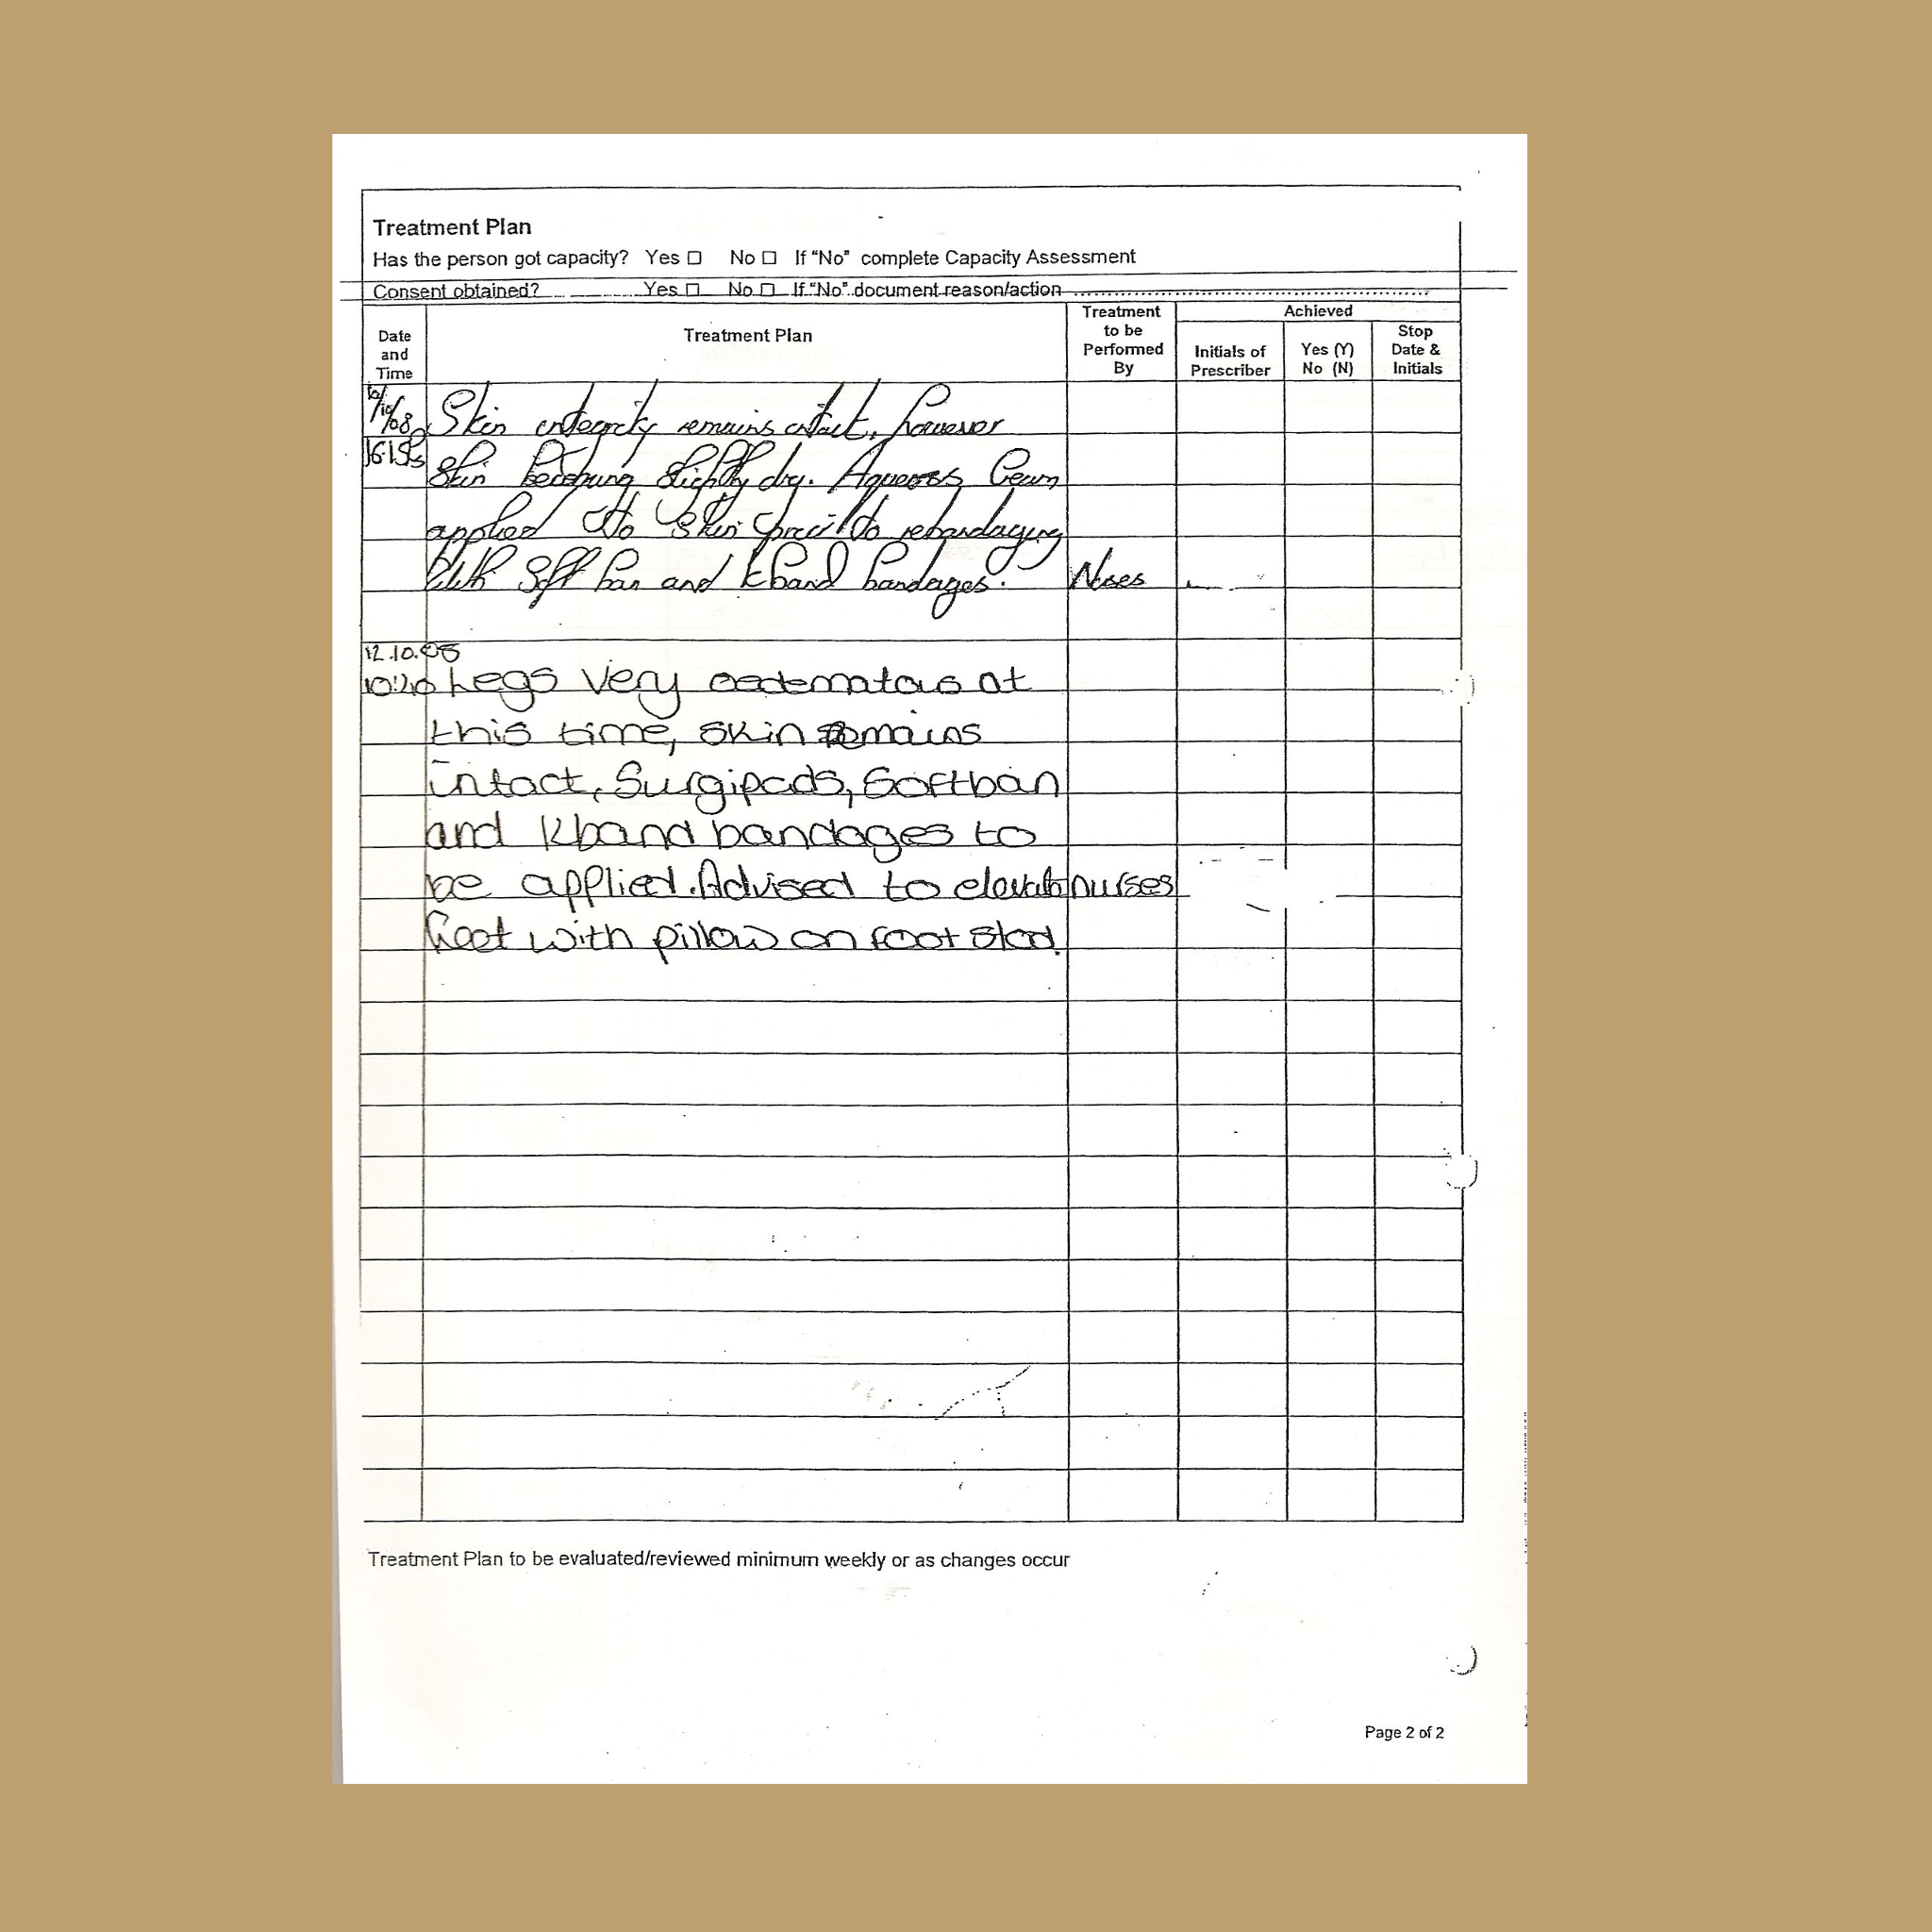 Treatment Plan
Has the person got capacity? Yes ☐ No ☐ If "No" complete Capacity Assessment
Consent obtained? Yes ☐ No ☐ If "No" document reason/action
Date and Time
Treatment Plan
Treatment to be Performed By
Achieved
Initials of Prescriber
Yes (Y) No (N)
Stop Date & Initials
/10/08 Skin integrity remains intact, however
skin becoming slightly dry. Aqueous Cream
applied to skin prior to rebandaging
with Soft ban and k band bandages. Nurses
12.10.08
Legs very oedematous at
this time, skin remains
intact, Surgipads, Softban
and Kband bandages to
be applied. Advised to elevate nurses
feet with pillow on foot stool.
Treatment Plan to be evaluated/reviewed minimum weekly or as changes occur
Page 2 of 2